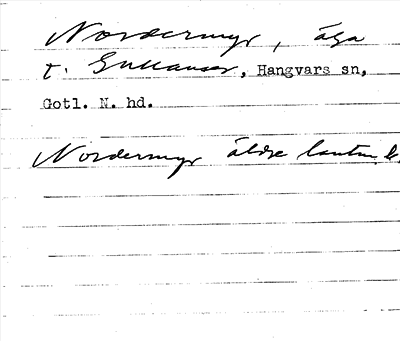 Nordermyr, äga
t. Gullauser, Hangvars sn,
Gotl. N. hd.
Nordermyr äldre lantm. k.